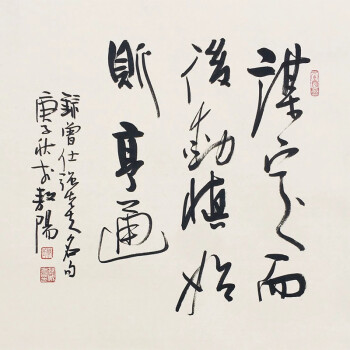 謀定而
後動慎始
則亨通
錄曾仕强先生名句
庚子秋于陽